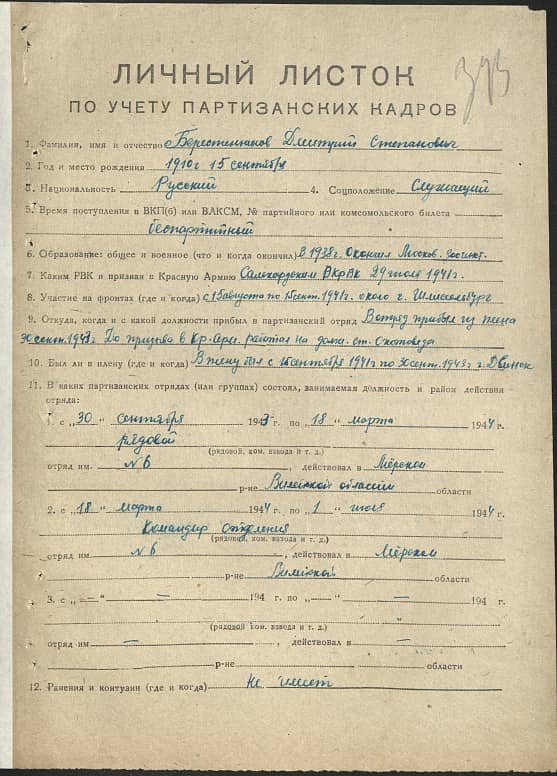 ЛИЧНЫЙ ЛИСТОК
ПО УЧЕТУ ПАРТИЗАНСКИХ КАДРОВ
1. Фамилия, имя и отчество Дмитрий Степанович
2. Год и место рождения 1910 г 15 сентября
3. Национальность Русский 4. Соцположение Служащий
5. Время поступления в ВКП(б) или ВЛКСМ, № партийного или комсомольского билета
беспартийный
6. Образование: общее и военное (что и когда окончил) в 1938 г. Окончил Москов.
7. Каким РВК и призван в Красную Армию Салехардским 29 июля 1941 г.
8. Участие на фронтах (где и когда) с 1 Августа по 15 сент. 1941 г. около г. Шлиссельбург
9. Откуда, когда и с какой должности прибыл в партизанский отряд В отряд прибыл из плена
30 сент. 1943 г. До призыва в Кр-Арм. работал на
10. Был ли в плену (где и когда) В плену был с 15 сентября 1941 г по 30 сент. 1943 г г. Двинск
11. В каких партизанских отрядах (или группах) состоял, занимаемая должность и район действия
отряда:
1. с „30“ сентября 1943 г. по „18“ марта 1944 г.
рядовой
(рядовой, ком. взвода и т. д.)
отряд им. № 6, действовал в Мёрском
р-не Вилейской области области
2. с „18“ марта 1944 г по „1“ июля 1944 г.
Командир отделения
(рядовой, ком. взвода и т. д.)
отряд им. № 6, действовал в Мёрском
р-не Вилейской области
3. с „—“ — 194 г. по „—“ — 194 г.
(рядовой, ком. взвода и т. д.)
отряд им. —, действовал в —
р-не области
12. Ранения и контузии (где и когда) Не имеет